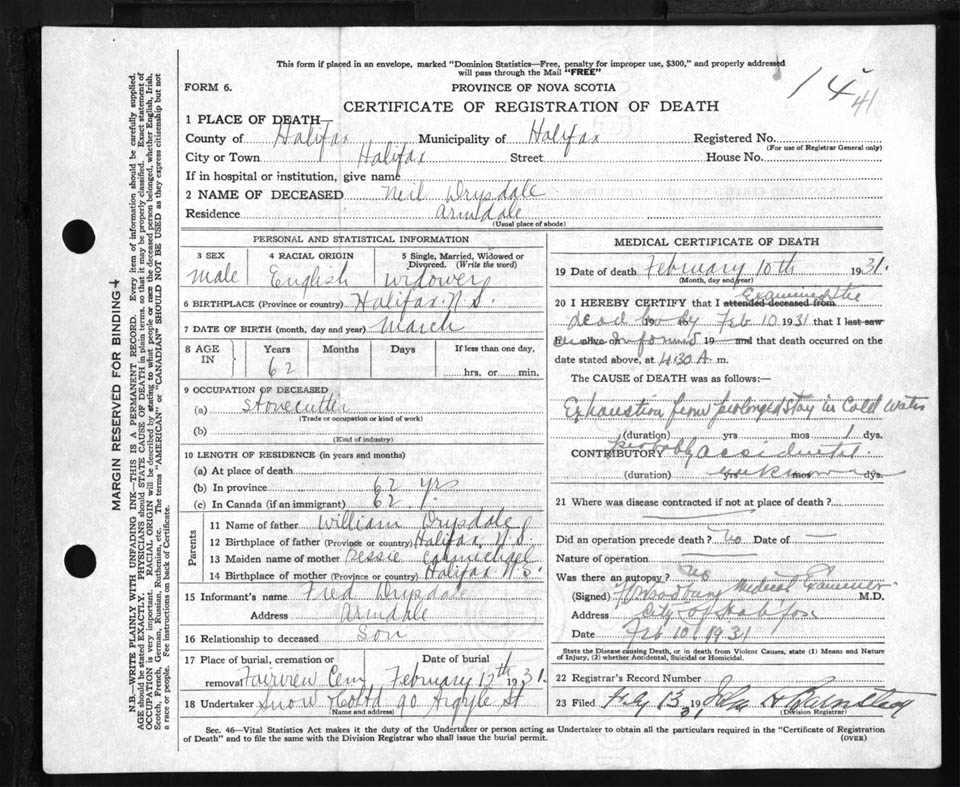 This form if placed in an envelope, marked "Dominion Statistics—Free, penalty for improper use, $300," and properly addressed
will pass through the Mail "FREE"
FORM 6.
PROVINCE OF NOVA SCOTIA
14
41
CERTIFICATE OF REGISTRATION OF DEATH
1 PLACE OF DEATH
County of Halifax Municipality of Halifax Registered No.
(For use of Registrar General only)
City or Town Halifax Street House No.
If in hospital or institution, give name
2 NAME OF DECEASED Neil Drysdale
Residence Armdale
(Usual place of abode)
PERSONAL AND STATISTICAL INFORMATION
3 SEX 4 RACIAL ORIGIN 5 Single, Married, Widowed or Divorced. (Write the word)
Male English Widower
6 BIRTHPLACE (Province or country) Halifax N.S.
7 DATE OF BIRTH (month, day and year) March
8 AGE IN Years Months Days If less than one day,
62 hrs. or min.
9 OCCUPATION OF DECEASED
(a) Stonecutter
(Trade or occupation or kind of work)
(b)
(Kind of industry)
10 LENGTH OF RESIDENCE (in years and months)
(a) At place of death
(b) In province 62 yrs
(c) In Canada (if an immigrant) 62 "
Parents
11 Name of father William Drysdale
12 Birthplace of father (Province or country) Halifax N.S.
13 Maiden name of mother Bessie Carmichael
14 Birthplace of mother (Province or country) Halifax N.S.
15 Informant's name Fred Drysdale
Address Armdale
16 Relationship to deceased Son
17 Place of burial, cremation or Date of burial
removal Fairview Cem February 12th 1931
18 Undertaker Snow & Co Ltd 90 Argyle St
(Name and address)
MEDICAL CERTIFICATE OF DEATH
19 Date of death February 10th 1931.
(Month, day and year)
20 I HEREBY CERTIFY that I attended deceased from Examined the
dead body 19 to Feb 10 1931 that I last saw
19 and that death occurred on the
date stated above, at 4.30 A. m.
The CAUSE of DEATH was as follows:
Exhaustion from prolonged stay in Cold Water
(duration) yrs mos 1 dys.
CONTRIBUTORY probably accidental
(duration) yrs unknown dys.
21 Where was disease contracted if not at place of death?
Did an operation precede death? No Date of —
Nature of operation
Was there an autopsy? No
(Signed) Medical Examiner M.D.
Address City of Halifax
Date Feb 10 1931
State the Disease causing Death, or in death from Violent Causes, state (1) Means and Nature
of Injury, (2) whether Accidental, Suicidal or Homicidal.
22 Registrar's Record Number
23 Filed Feby 13 193 John H
(Division Registrar)
Sec. 46—Vital Statistics Act makes it the duty of the Undertaker or person acting as Undertaker to obtain all the particulars required in the "Certificate of Registration
of Death" and to file the same with the Division Registrar who shall issue the burial permit.
(OVER)
MARGIN RESERVED FOR BINDING
N.B.—WRITE PLAINLY WITH UNFADING INK—THIS IS A PERMANENT RECORD. Every item of information should be carefully supplied.
AGE should be stated EXACTLY. PHYSICIANS should STATE CAUSE OF DEATH in plain terms, so that it may be properly classified. Exact statement of
OCCUPATION is very important. RACIAL ORIGIN will be described by stating to what people or race the deceased person belonged, whether English, Irish,
Scotch, French, German, Russian, Ruthenian, etc. The terms "AMERICAN" or "CANADIAN" SHOULD NOT BE USED as they express citizenship but not
a race or people. See instructions on back of Certificate.